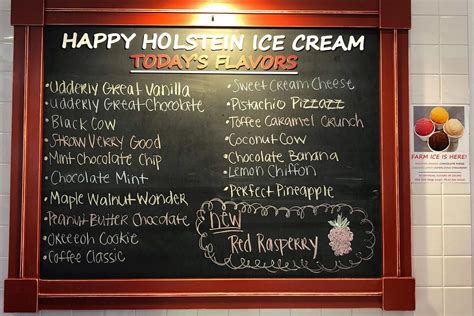 HAPPY HOLSTEIN ICE CREAM
TODAY'S FLAVORS
•Udderly Great Vanilla
•Udderly Great Chocolate
•Black Cow
•Straw Verry Good
•Mint Chocolate Chip
•Chocolate Mint
•Maple Walnut Wonder
•Peanut Butter Chocolate
•Okeeoh Cookie
•Coffee Classic
•Sweet Cream Cheese
•Pistachio Pizzazz
•Toffee Caramel Crunch
•Coconut Cow
•Chocolate Banana
•Lemon Chiffon
•Perfect Pineapple
new
Red Rasperry
FARM ICE IS HERE!